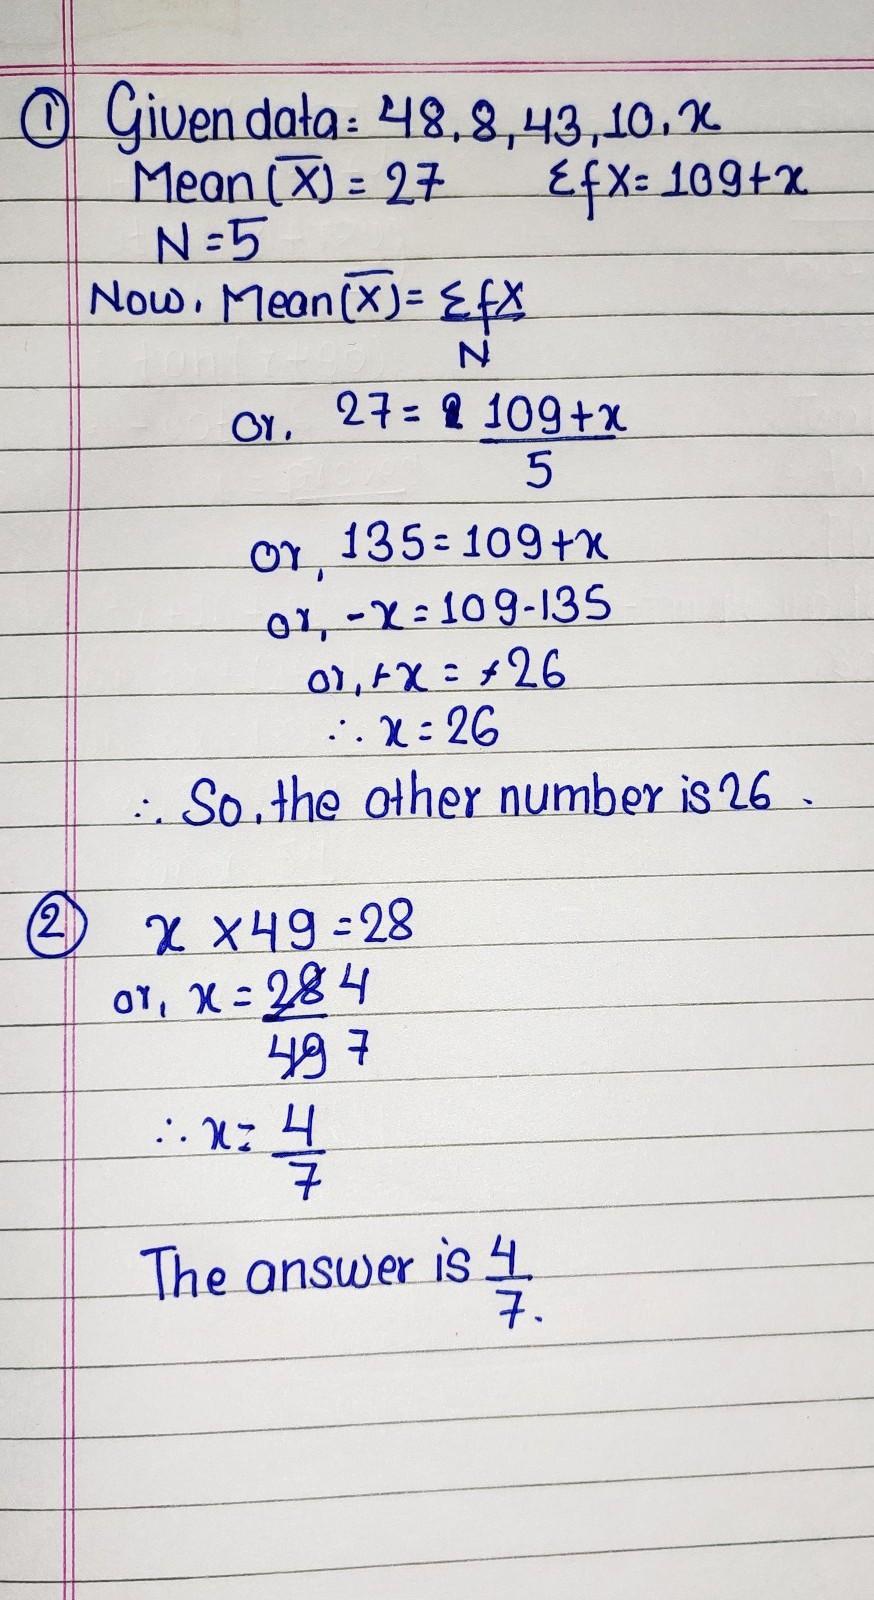 ① Given data: 48, 8, 43, 10, x
Mean (X̅) = 27 Σfx = 109+x
N = 5
Now, Mean (X̅) = Σfx/N
or, 27 = 109+x/5
or, 135 = 109+x
or, -x = 109-135
or, +x = +26
∴ x = 26
∴ So, the other number is 26.
② x × 49 = 28
or, x = 28 4
49 7
∴ x = 4/7
The answer is 4/7.